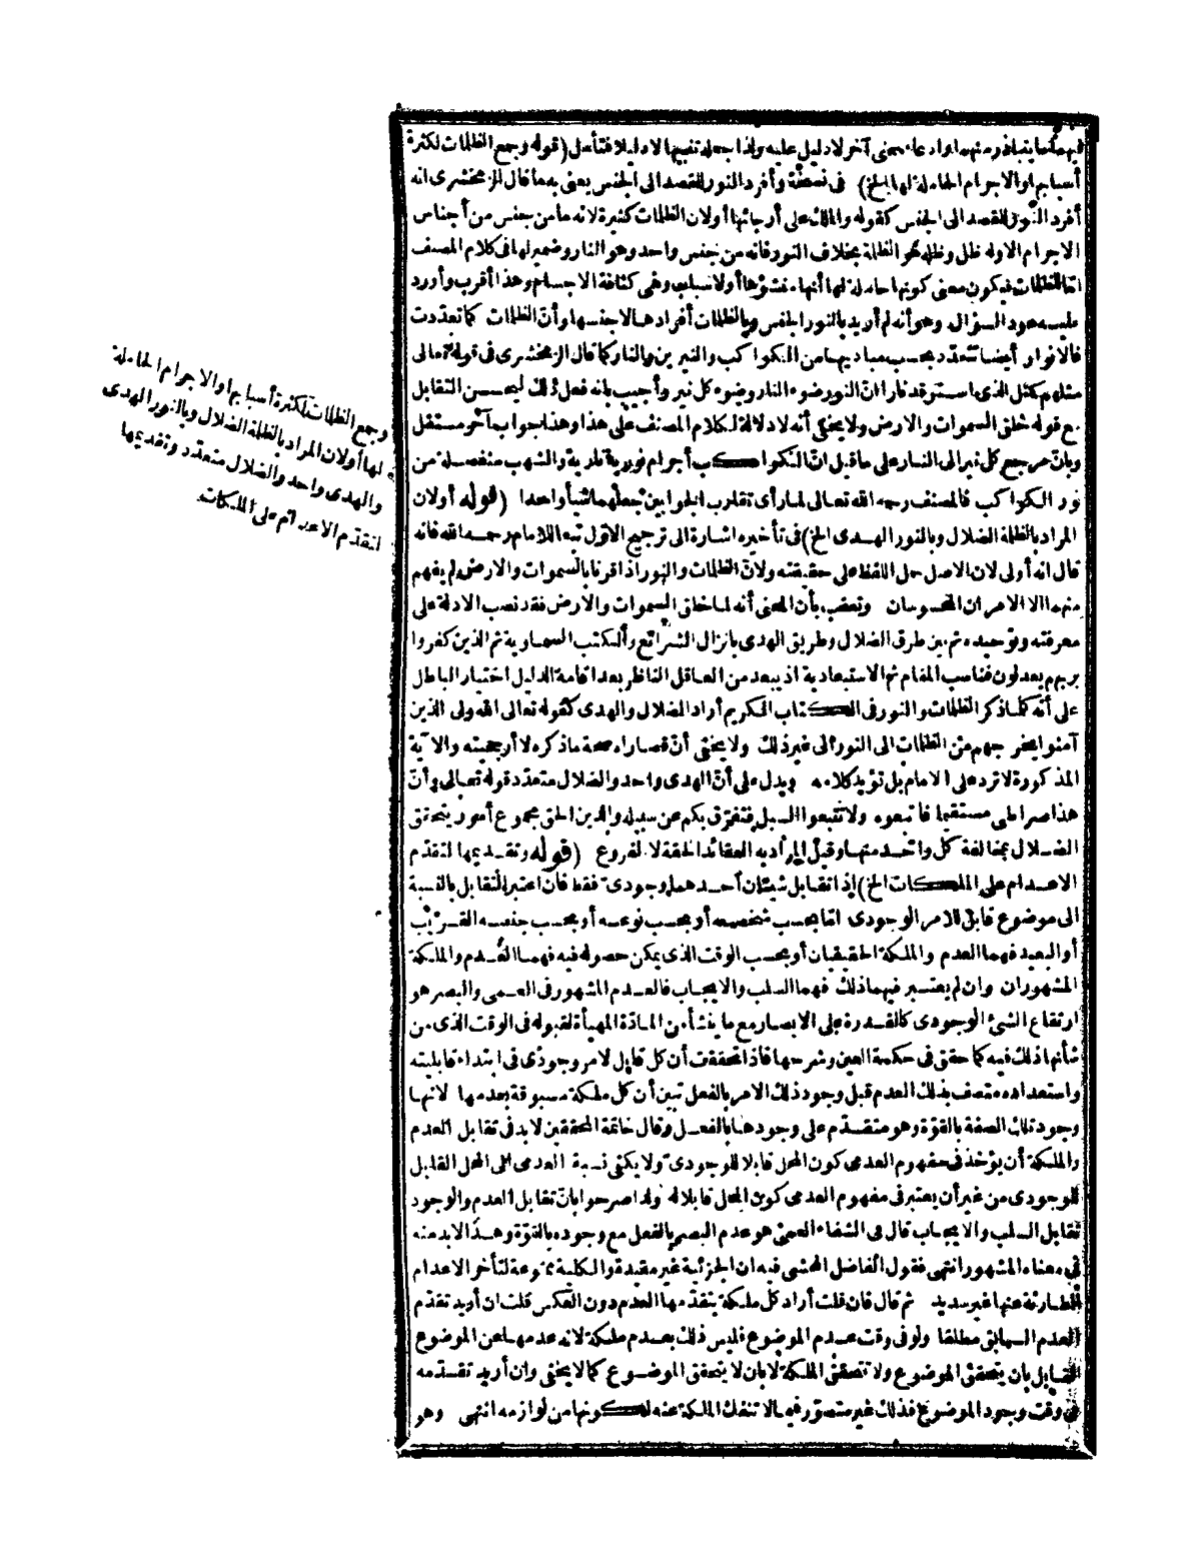 آخر لا دليل عليه ولذا جعله تفسيرا الاولى لا فتأمل (قوله وجمع الظلمات لكثرة
أسبابها والاجرام الحاملة لها الخ) فى نسخة وأفرد النور للقصد الى الجنس يعنى به ما قال الزمخشرى انه
أفرد النور للقصد الى الجنس كقوله والملك على أرجائها أولان الظلمات كثيرة لانه ما من جنس من أجناس
الاجرام الاوله ظل وظله هو الظلمة بخلاف النور فانه من جنس واحد وهو النار وضمير لها فى كلام المصنف
اما للظلمات فيكون معنى كونها حاملة لها أنها منشؤها أولاسبابها وهى كثافة الاجسام وهذا أقرب وأورد
عليه هود السؤال وهو أنه لم أريد بالنور الجنس وبالظلمات أفرادها لاجنسها وأن الظلمات كما تعددت
فالانوار أيضا تتعدد بحسب مباديها من الكواكب والنيرين والنار كما قال الزمخشرى فى قوله تعالى
مثلهم كمثل الذى استوقد نارا ان النور ضوء النار وضوء كل نير وأجيب بانه فعل ذلك ليحسن التقابل
مع قوله خلق السموات والارض ولا يخفى أنه لا دلالة لكلام المصنف على هذا وهذا جواب آخر مستقل
وبان مرجع كل نير الى النار على ما قيل ان الكواكب أجرام نورية نارية والشهب منفصلة من
نور الكواكب فالمصنف رحمه الله تعالى لما رأى تقارب الجوابين جعلهما شيأ واحدا (قوله أولان
المراد بالظلمة الضلال وبالنور الهدى الخ) فى تأخيره اشارة الى ترجيح الاول تبعا للامام رحمه الله فانه
قال انه أولى لان الاصل حمل اللفظ على حقيقته ولان الظلمات والنور اذا قرنا بالسموات والارض لم يفهم
منهما الا الامران المحسوسان وتعقب بأن المعنى أنه لما خلق السموات والارض فقد نصب الادلة على
معرفته وتوحيده ثم بين طرق الضلال وطريق الهدى بانزال الشرائع والكتب السماوية ثم الذين كفروا
بربهم يعدلون فناسب المقام ثم الاستبعادية اذ يبعد من العاقل الناظر بعد اقامة الدليل اختيار الباطل
على أنه كلما ذكر الظلمات والنور فى الكتاب الكريم أراد الضلال والهدى كقوله تعالى الله ولى الذين
آمنوا يخرجهم من الظلمات الى النور الى غير ذلك ولا يخفى أن قصاراه صحة ما ذكره لا أرجحيته والآية
المذكورة لا ترد على الامام بل تؤيد كلامه ويدل على أن الهدى واحد والضلال متعدد قوله تعالى وأن
هذا صراطى مستقيما فاتبعوه ولا تتبعوا السبل فتفرق بكم عن سبيله والدين الحق مجموع أمور يتحقق
الضلال بمخالفة كل واحد منها وقيل المراد به العقائد الحقة لا الفروع (قوله وتقديمها لتقدم
الاعدام على الملكات الخ) اذا تقابل شيئان أحدهما وجودى فقط فان اعتبر التقابل بالنسبة
الى موضوع قابل للامر الوجودى اما بحسب شخصه أو بحسب نوعه أو بحسب جنسه القريب
أو البعيد فهما العدم والملكة الحقيقيان أو بحسب الوقت الذى يمكن حصوله فيه فهما العدم والملكة
المشهوران وان لم يعتبر فيهما ذلك فهما السلب والايجاب فالعدم المشهور فى العمى والبصر هو
ارتفاع الشئ الوجودى كالقدرة على الابصار مع ما ينشأ من المادة المهيأة لقبوله فى الوقت الذى من
شأنها ذلك فيه كما حقق فى حكمة العين وشرحها فاذا تحققت أن كل قابل لامر وجودى فى ابتداء قابليته
واستعداده متصف بذلك العدم قبل وجود ذلك الامر بالفعل تبين أن كل ملكة مسبوقة بعدمها لانها
وجود تلك الصفة بالقوة وهو متقدم على وجودها بالفعل وقال خاتمة المحققين لابد فى تقابل العدم
والملكة أن يؤخذ فى مفهوم العدمى كون المحل قابلا للوجودى ولا يكفى نسبة العدمى الى المحل القابل
للوجودى من غير أن يعتبر فى مفهوم العدمى كون المحل قابلا له ولذا صرحوا بان تقابل العدم والوجود
تقابل السلب والايجاب قال فى الشفاء العمى هو عدم البصر بالفعل مع وجوده بالقوة وهذا لابد منه
فى معناه المشهور انتهى فقول الفاضل المحشى فيه ان الجزئية غير مقيدة والكلية ممنوعة لتأخر الاعدام
الطارئة عنها غير سديد ثم قال فان قلت أراد كل ملكة يتقدمها العدم دون العكس قلت ان أريد تقدم
العدم السابق مطلقا ولو فى وقت عدم الموضوع فليس ذلك بعدم ملكة لانه عدمها عن الموضوع
القابل بان يتحقق الموضوع ولا تتحقق الملكة لا بان لا يتحقق الموضوع كما لا يخفى وان أريد تقدمه
فى وقت وجود الموضوع فذلك غير متصور فيما لا تنفك الملكة عنه لكونها من لوازمه انتهى وهو
وجمع الظلمات لكثرة أسبابها والاجرام الحاملة
لها أولان المراد بالظلمة الضلال وبالنور الهدى
والهدى واحد والضلال متعدد وتقديمها
لتقدم الاعدام على الملكات